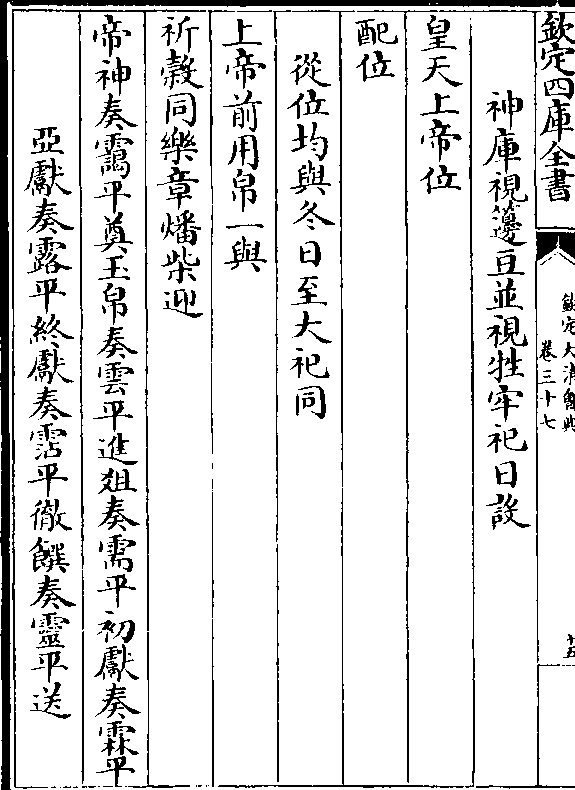 欽定四庫全書
欽定大清會典
卷三十七
十五
神庫視籩豆並視牲牢祀日設
皇天上帝位
配位
從位均與冬日至大祀同
上帝前用帛一與
祈穀同樂章燔柴迎
帝神奏靄平奠玉帛奏雲平進俎奏需平初獻奏霖平
亞獻奏露平終獻奏霑平徹饌奏靈平送